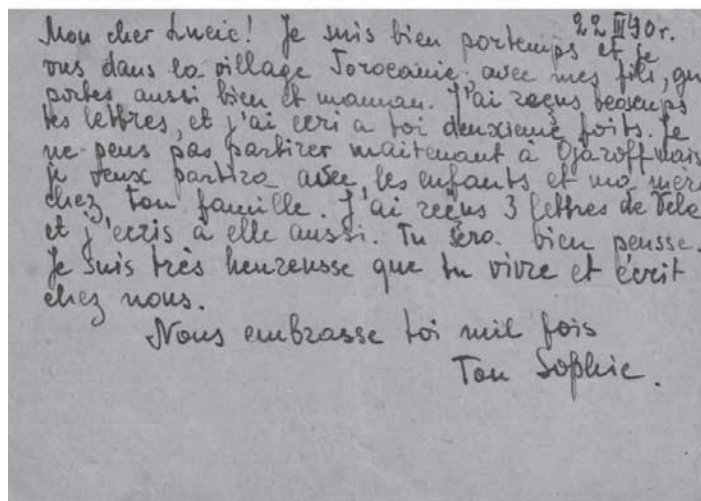 22 III 40 r.
Mon cher Lucie! Je suis bien portemps et je
vus dans la village Torocanie avec mes fils, qui
portes aussi bien et maman. J'ai reçus beosemps
tes lettres, et j'ai ecri a toi deuxieme foits. Je
ne peus pas partirer maitenant à Ojaroff mais
je veux partira avec les enfants et ma mère
chez ton famille. J'ai reçus 3 lettres de Vela
et j'ecris à elle aussi. Tu sera bien pensse.
Je suis très heureusse que tu vivre et écrit
chez nous.
Nous embrasse toi mil fois
Ton Sophie.